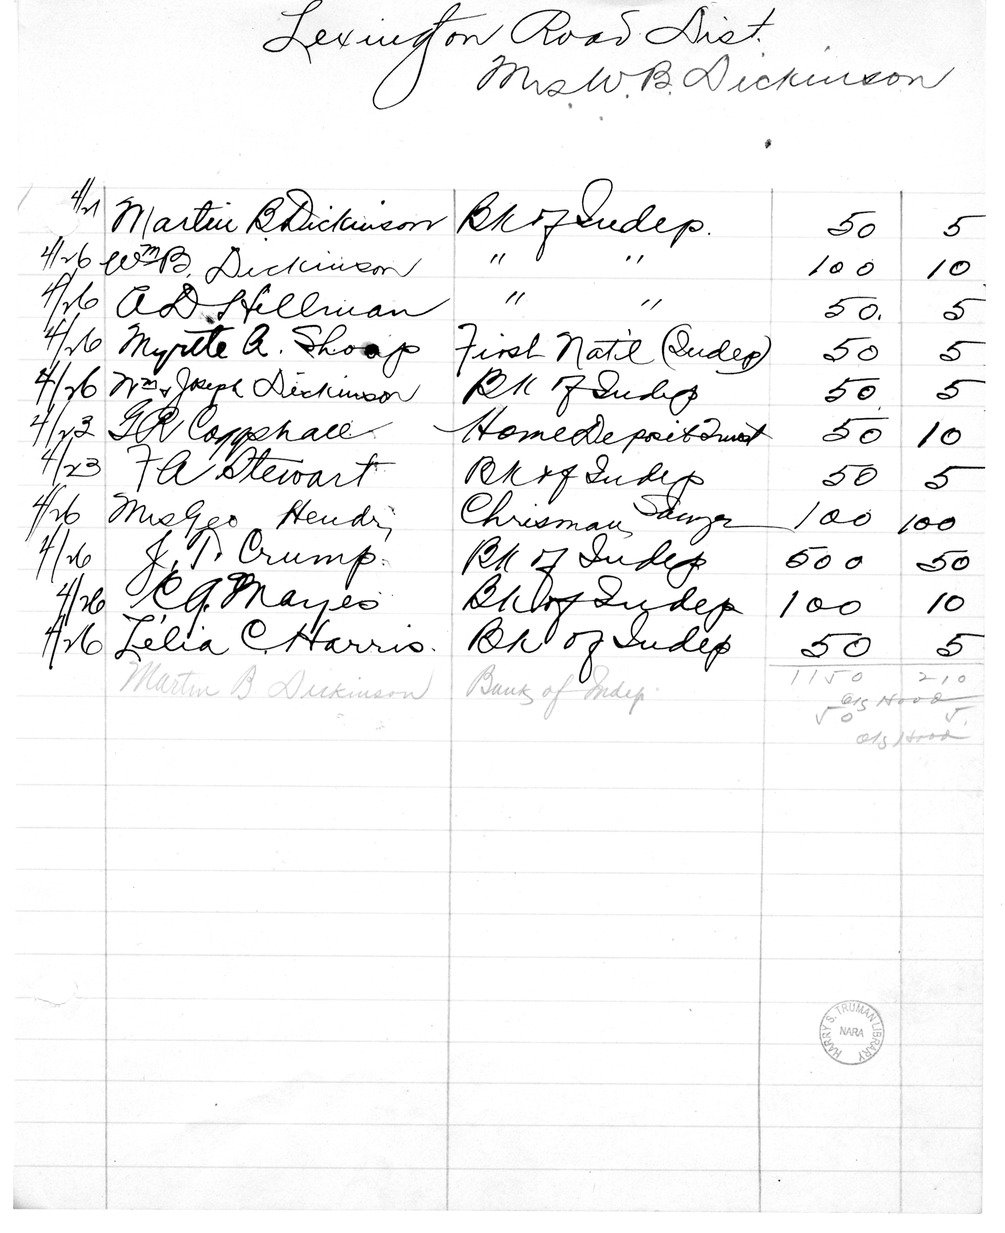 Lexington Road Dist.
Mrs. W. B. Dickinson
4/21 Martin B Dickinson Bk of Indep. 50 5
4/26 Wm B. Dickinson " " 100 10
4/26 A D Hillman " " 50. 5
4/26 Myrtle A. Shoop First Nat'l (Indep) 50 5
4/26 Wm & Joseph Dickinson Bk of Indep 50 5
4/23 G R Coggshall Home Deposit Trust 50 10
4/23 F A Stewart Bk of Indep 50 5
4/26 Mrs Geo Hendri Chrisman Sawyer 100 100
4/26 J. T. Crump. Bk of Indep 500 50
4/26 C. G. Mayes Bk of Indep 100 10
4/26 Lelia C. Harris. Bk of Indep 50 5
Martin B Dickinson Bank of Indep. 1150 210
Hood
50 5.
Hood
HARRY S. TRUMAN LIBRARY
NARA